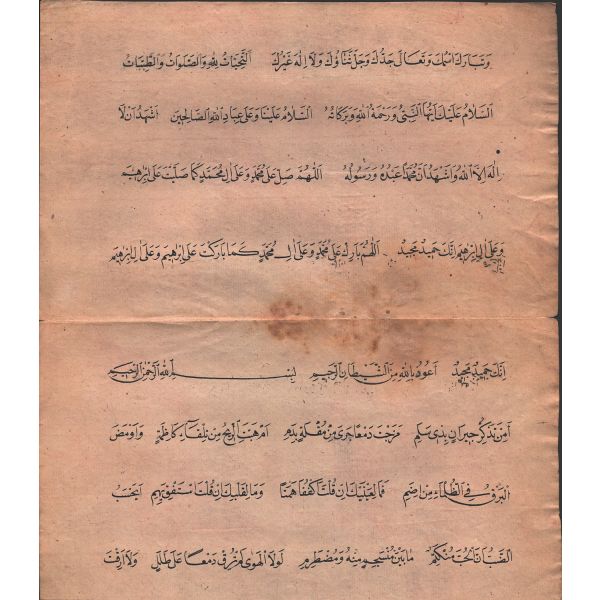 وَتَبَارَكَ اسْمُكَ وَتَعَالَى جَدُّكَ وَجَلَّ ثَنَاؤُكَ وَلَا اِلٰهَ غَيْرُكَ اَلتَّحِيَّاتُ لِلّٰهِ وَالصَّلَوَاتُ وَالطَّيِّبَاتُ
اَلسَّلَامُ عَلَيْكَ اَيُّهَا النَّبِىُّ وَرَحْمَةُ اللّٰهِ وَبَرَكَاتُهُ اَلسَّلَامُ عَلَيْنَا وَعَلَى عِبَادِ اللّٰهِ الصَّالِحِينَ اَشْهَدُ اَنْ لَا
اِلٰهَ اِلَّا اللّٰهُ وَاَشْهَدُ اَنَّ مُحَمَّدًا عَبْدُهُ وَرَسُولُهُ اَللّٰهُمَّ صَلِّ عَلَى مُحَمَّدٍ وَعَلَى اٰلِ مُحَمَّدٍ كَمَا صَلَّيْتَ عَلَى اِبْرٰهِيمَ
وَعَلَى اٰلِ اِبْرٰهِيمَ اِنَّكَ حَمِيدٌ مَجِيدٌ اَللّٰهُمَّ بَارِكْ عَلَى مُحَمَّدٍ وَعَلَى اٰلِ مُحَمَّدٍ كَمَا بَارَكْتَ عَلَى اِبْرٰهِيمَ وَعَلَى اٰلِ اِبْرٰهِيمَ
اِنَّكَ حَمِيدٌ مَجِيدٌ اَعُوذُ بِاللّٰهِ مِنَ الشَّيْطَانِ الرَّجِيمِ بِسْمِ اللّٰهِ الرَّحْمٰنِ الرَّحِيمِ
اَمِنْ تَذَكُّرِ جِيرَانٍ بِذِى سَلَمِ مَزَجْتَ دَمْعًا جَرَى مِنْ مُقْلَةٍ بِدَمِ اَمْ هَبَّتِ الرِّيحُ مِنْ تِلْقَاءِ كَاظِمَةٍ وَاَوْمَضَ
الْبَرْقُ فِى الظَّلْمَاءِ مِنْ اِضَمِ فَمَا لِعَيْنَيْكَ اِنْ قُلْتَ اكْفُفَا هَمَتَا وَمَا لِقَلْبِكَ اِنْ قُلْتَ اسْتَفِقْ يَهِمِ اَيَحْسَبُ
الصَّبُّ اَنَّ الْحُبَّ مُنْكَتِمٌ مَا بَيْنَ مُنْسَجِمٍ مِنْهُ وَمُضْطَرِمِ لَوْلَا الْهَوٰى لَمْ تُرِقْ دَمْعًا عَلَى طَلَلٍ وَلَا اَرِقْتَ